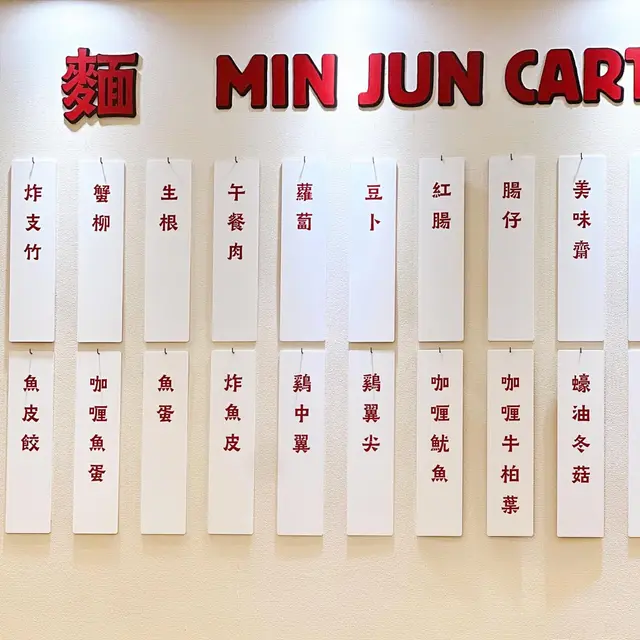 麵 MIN JUN CART
炸支竹
蟹柳
生根
午餐肉
蘿蔔
豆卜
紅腸
腸仔
美味齋
魚皮餃
咖喱魚蛋
魚蛋
炸魚皮
鷄中翼
鷄翼尖
咖喱魷魚
咖喱牛柏葉
蠔油冬菇